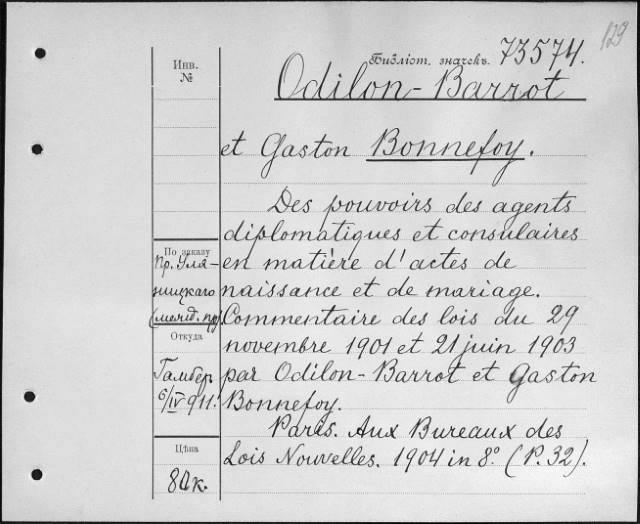 129
Инв.
№
Библіот. значекъ. 73574.
Odilon-Barrot
et Gaston Bonnefoy.
Des pouvoirs des agents
diplomatiques et consulaires
en matière d'actes de
naissance et de mariage.
Commentaire des lois du 29
novembre 1901 et 21 juin 1903
par Odilon-Barrot et Gaston
Bonnefoy.
Paris. Aux Bureaux des
Lois Nouvelles. 1904 in 8º. (P. 32).
По заказу
Пр. Уля-
ницкаго
(межд. пр).
Откуда
Гамбер.
6/IV 911.
Цѣна
80 к.